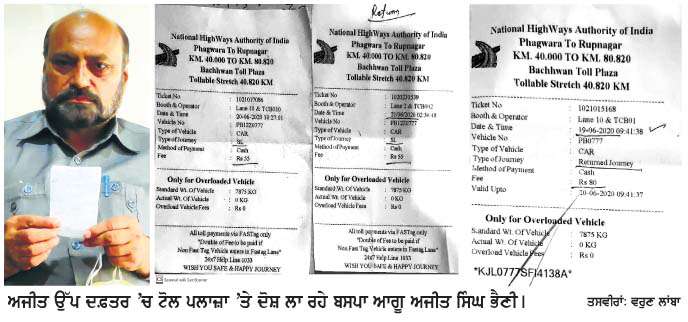 National HighWays Authority of India
Phagwara To Rupnagar
KM. 40.000 TO KM. 80.820
Bachhwan Toll Plaza
Tollable Stretch 40.820 KM
Ticket No 1021017096
Booth & Operator Lane 10 & TCB010
Date & Time 20-06-2020 10:27:01
Vehicle No
Type of Vehicle CAR
Type of Journey SL
Method of Payment Cash
Fee Rs 55
Only for Overloaded Vehicle
Standard Wt. Of Vehicle 7875 KG
Actual Wt. Of Vehicle 0 KG
Overload Vehicle Fees Rs 0
All toll payments via FASTag only
"Double of Fee to be paid if
Non Fast Tag Vehicle enters in Fastag Lane"
24x7 Help Line 1033
WISH YOU SAFE & HAPPY JOURNEY
Scanned with CamScanner
Return
National HighWays Authority of India
Phagwara To Rupnagar
KM. 40.000 TO KM. 80.820
Bachhwan Toll Plaza
Tollable Stretch 40.820 KM
Ticket No
Booth & Operator Lane 2 & TCB012
Date & Time
Vehicle No
Type of Vehicle CAR
Type of Journey SL
Method of Payment Cash
Fee Rs 55
Only for Overloaded Vehicle
Standard Wt. Of Vehicle 7875 KG
Actual Wt. Of Vehicle 0 KG
Overload Vehicle Fees Rs 0
All toll payments via FASTag only
"Double of Fee to be paid if
Non Fast Tag Vehicle enters in Fastag Lane"
24x7 Help Line 1033
WISH YOU SAFE & HAPPY JOURNEY
National HighWays Authority of India
Phagwara To Rupnagar
KM. 40.000 TO KM. 80.820
Bachhwan Toll Plaza
Tollable Stretch 40.820 KM
Ticket No 1021015168
Booth & Operator Lane 10 & TCB01
Date & Time 19-06-2020 09:41:38
Vehicle No PB0777
Type of Vehicle CAR
Type of Journey Returned Journey
Method of Payment Cash
Fee Rs 80
Valid Upto 20-06-2020 09:41:37
Only for Overloaded Vehicle
Standard Wt. Of Vehicle 7875 KG
Actual Wt. Of Vehicle 0 KG
Overload Vehicle Fees Rs 0
*KJL0777SFI4138A*
ਅਜੀਤ ਉੱਪ ਦਫ਼ਤਰ 'ਚ ਟੋਲ ਪਲਾਜ਼ਾ 'ਤੇ ਦੋਸ਼ ਲਾ ਰਹੇ ਬਸਪਾ ਆਗੂ ਅਜੀਤ ਸਿੰਘ ਭੈਣੀ। ਤਸਵੀਰਾਂ: ਵਰੁਣ ਲਾਂਬਾ